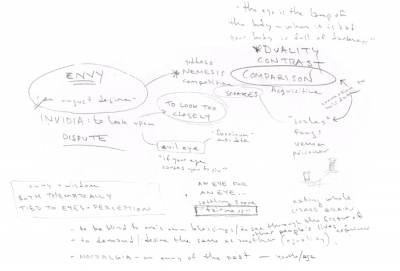 "the eye is the lamp of
the body - when it is bad
your body is full of darkness"
*DUALITY
CONTRAST
COMPARISON
Acquisitive
goddess
*NEMESIS
competition
SNAKES
ENVY
"an unjust desire"
INVIDIA: to look upon
DISPUTE
TO LOOK TOO
CLOSELY
evil eye
"if your eye
causes you to sin"
"scales"
fangs
venom
poisoner
envy + wisdom
BOTH THEMATICALLY
TIED TO EYES + PERCEPTION
AN EYE FOR
AN EYE...
settling score
"fairness"
eating whole
LIZARD BRAIN
- to be blind to one's own blessings / to see through the factor of
other people's lives
- to demand / desire the same as another (equality)
- NOSTALGIA - an envy of the past - youth/age